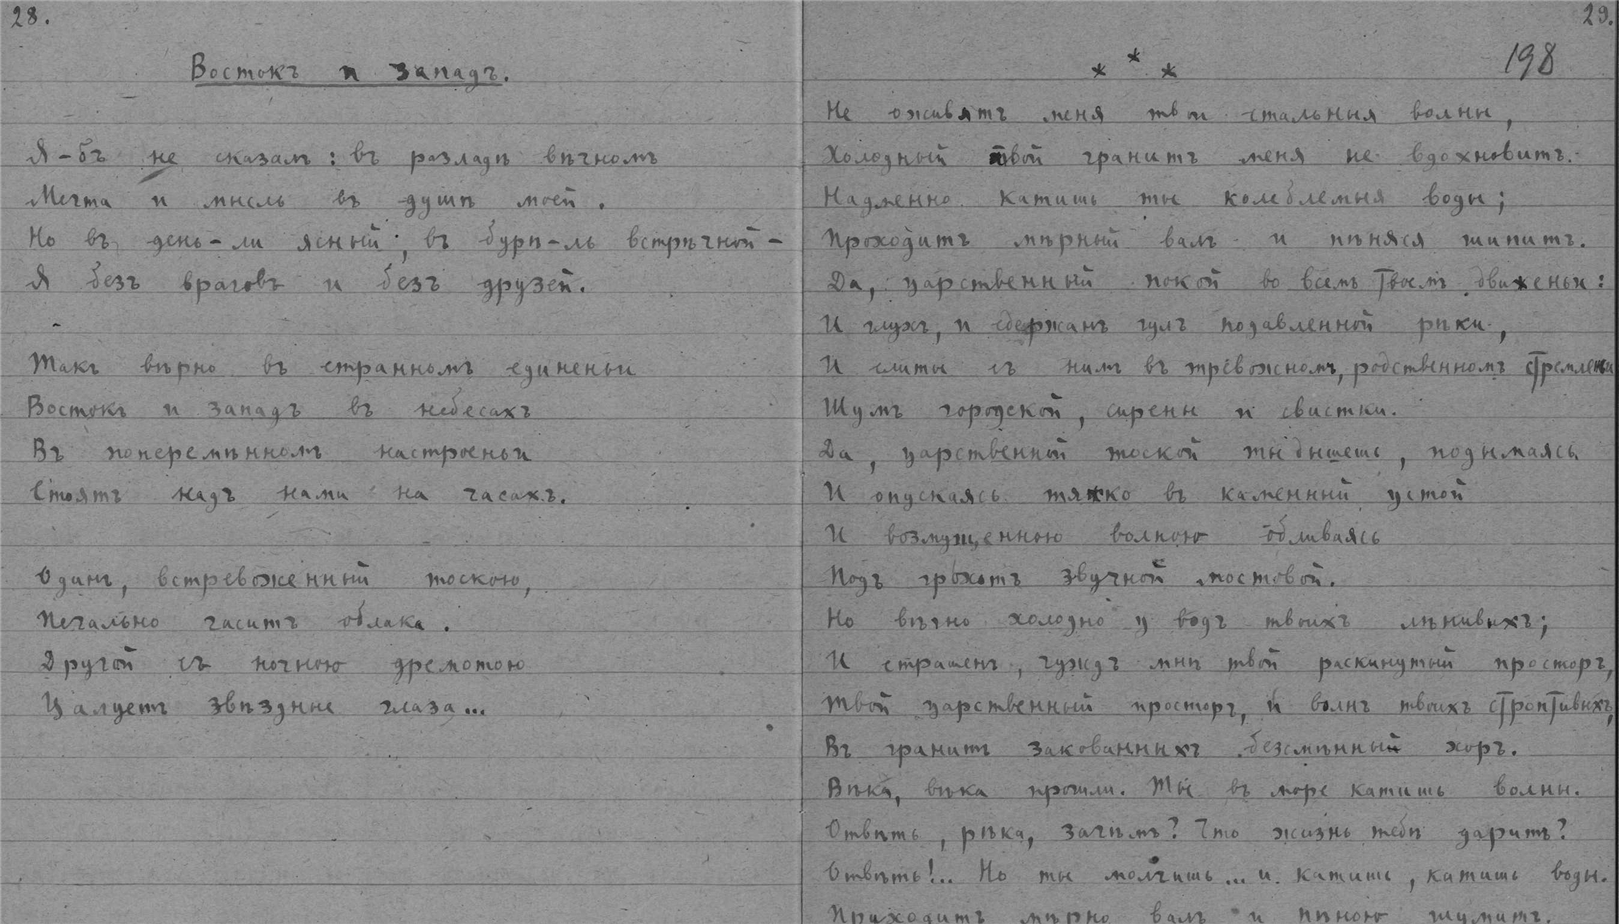 28.
Востокъ и западъ.
Я-бъ не сказалъ: въ разладѣ вѣчномъ
Мечта и мысль въ душѣ моей.
Но въ день-ли ясный; въ бурѣ-ль встрѣчной –
Я безъ враговъ и безъ друзей.
Такъ вѣрно въ странномъ единеньи
Востокъ и западъ въ небесахъ
Въ поперемѣнномъ настроеньи
Стоятъ надъ нами на часахъ.
Одинъ, встревоженный тоскою,
Печально гаситъ облака.
Другой съ ночною дремотою
Цалуетъ звѣздные глаза...
29.
198
* * *
Не оживятъ меня твои стальныя волны,
Холодный твой гранитъ меня не вдохновитъ.
Надменно катишь ты колеблемыя воды;
Проходитъ мѣрный валъ и пѣняся шипитъ.
Да, царственный покой во всемъ твоемъ движеньи:
И глухъ, и сдержанъ гулъ подавленной рѣки,
И слиты съ нимъ въ тревожномъ, родственномъ стремленьи
Шумъ городской, сирены и свистки.
Да, царственной тоской ты дышешь, подымаясь
И опускаясь тяжко въ каменный устой
И возмущенною волною обливаясь
Подъ грохотъ звучной мостовой.
Но вѣчно холодно у водъ твоихъ лѣнивыхъ;
И страшенъ, чуждъ мнѣ твой раскинутый просторъ,
Твой царственный просторъ, и волнъ твоихъ строптивыхъ,
Въ гранитъ закованныхъ безсмѣнный хоръ.
Вѣка, вѣка прошли. Ты въ море катишь волны.
Отвѣть, рѣка, зачѣмъ? Что жизнь тебѣ даритъ?
Отвѣть!.. Но ты молчишь... и катишь, катишь воды.
Приходитъ мѣрно валъ и пѣною шумитъ.